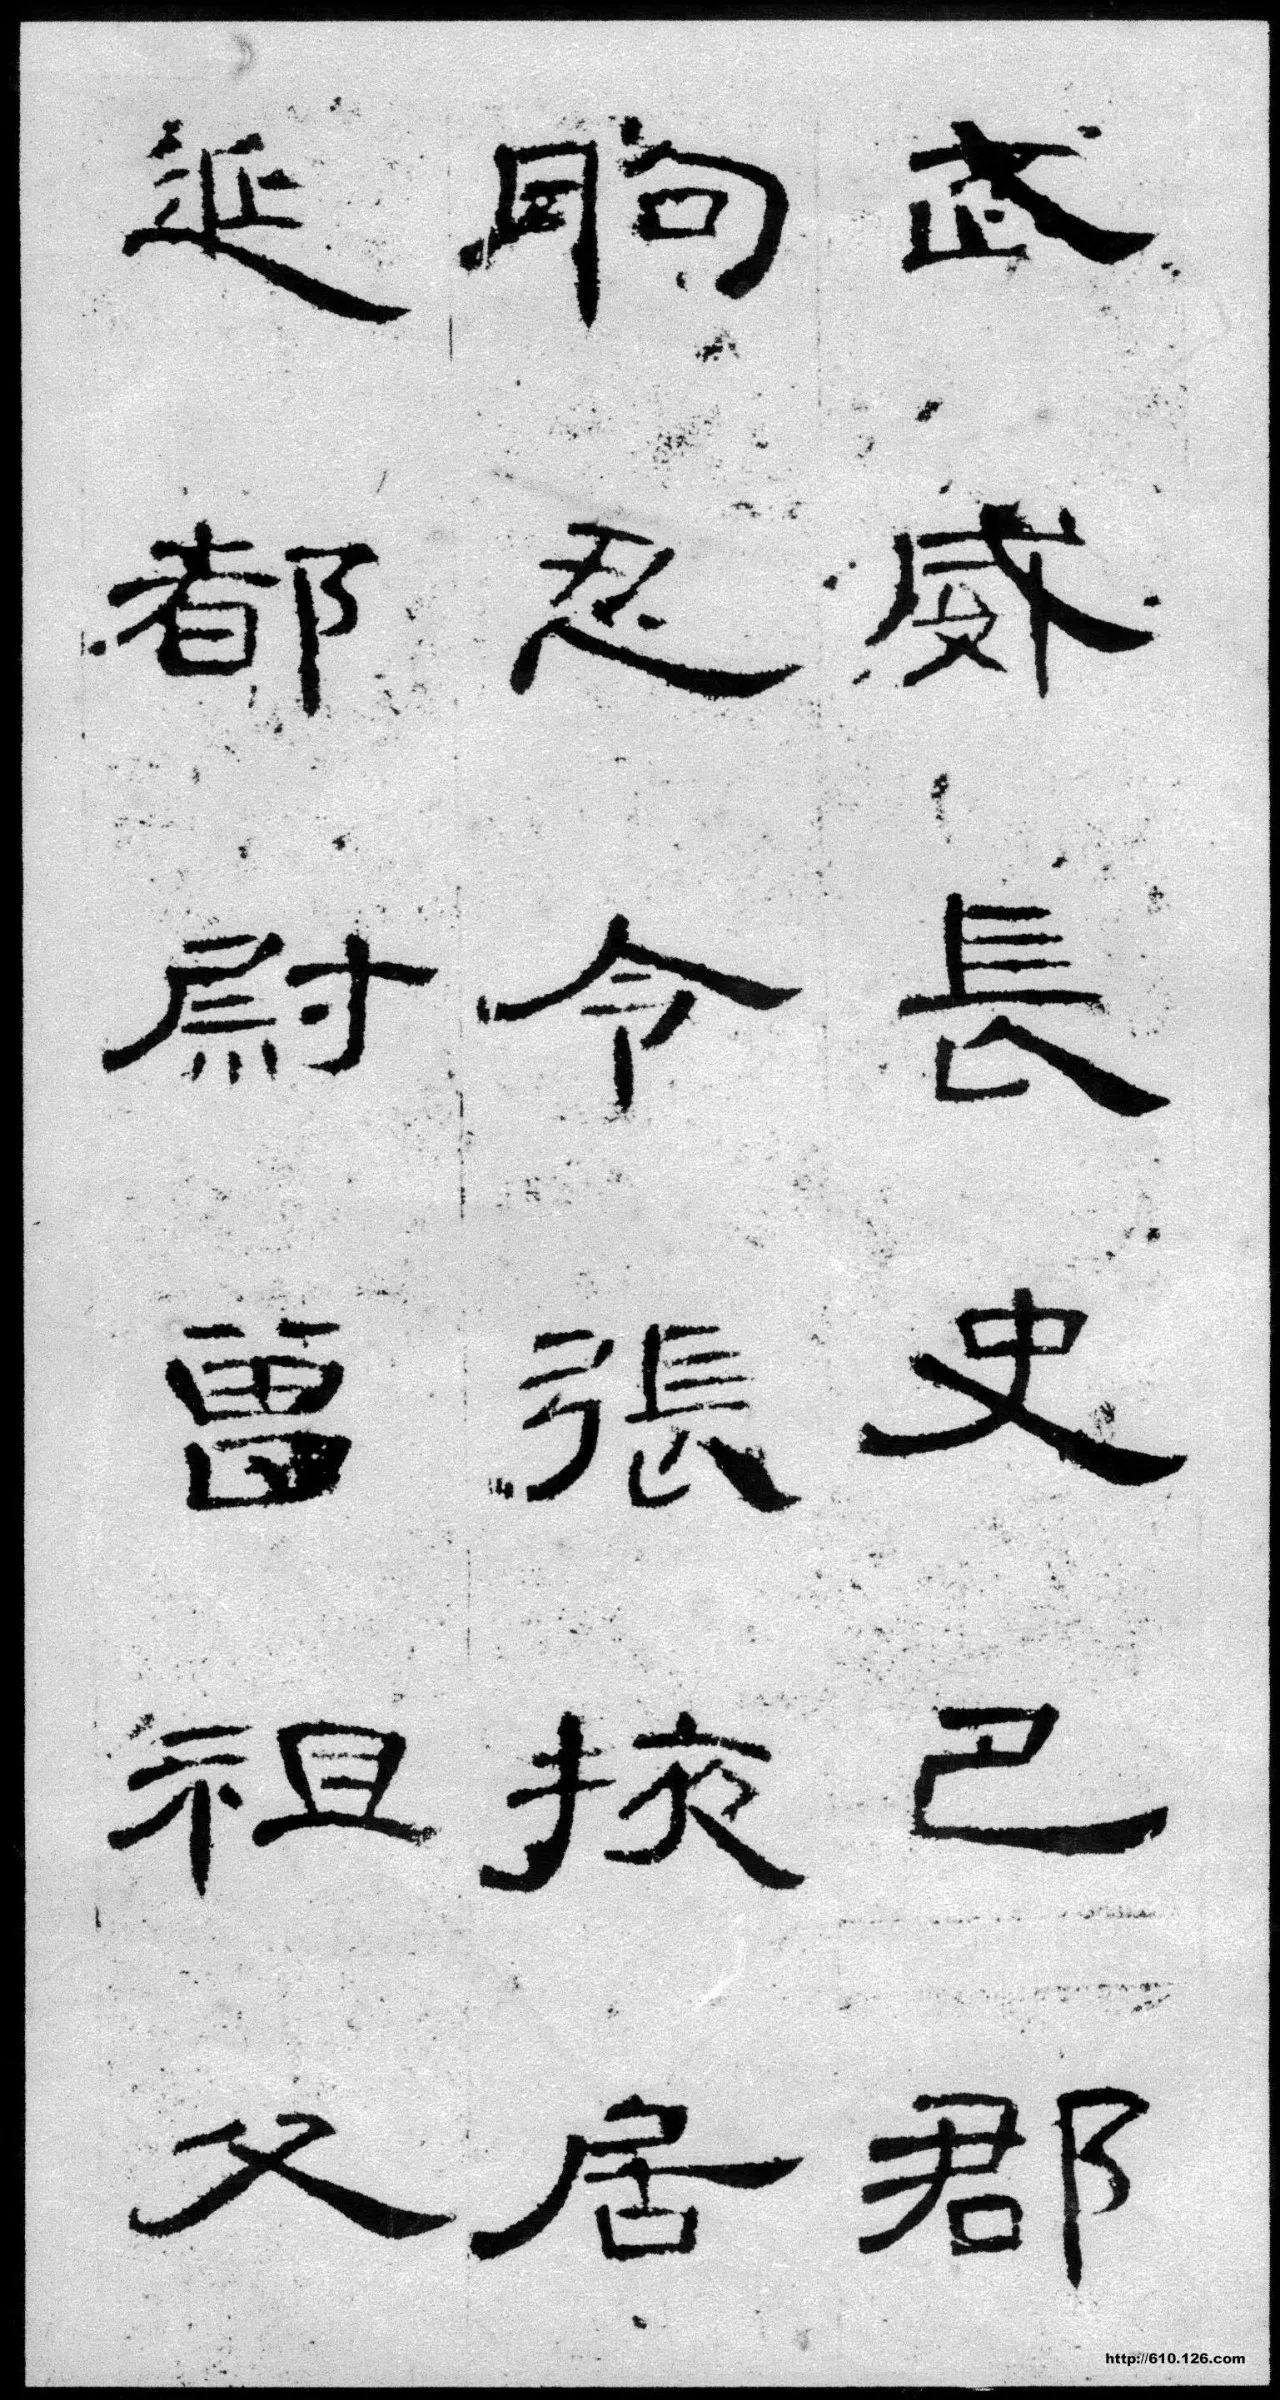 武威長史巴郡
朐忍令張掖居
延都尉曾祖父
http://610.126.com